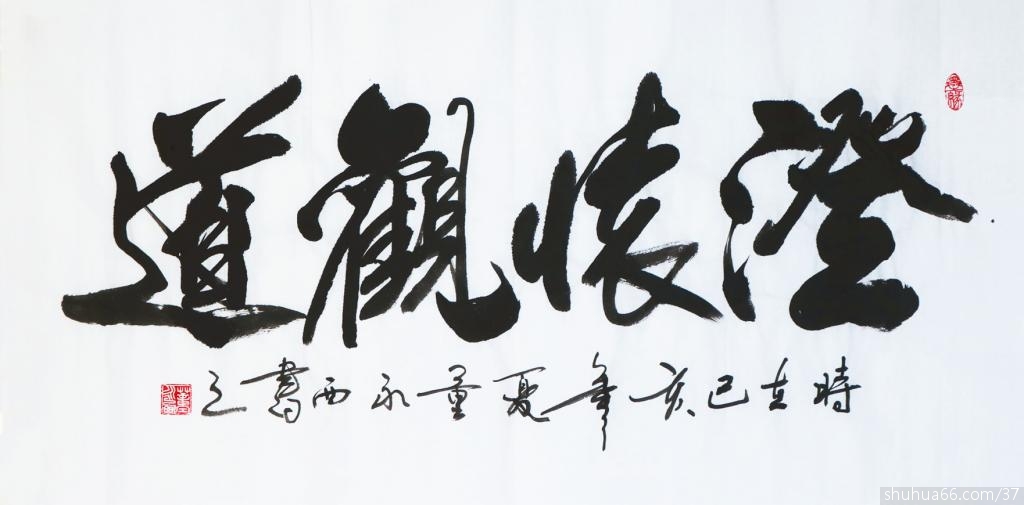 澄懷觀道
時在己亥年夏董永西書之
shuhua66.com/37